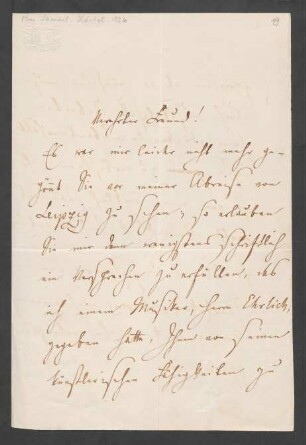 19
Verehrter Freund!
Es war mir leider nicht mehr ge-
gönnt Sie vor meiner Abreise von
Leipzig zu sehen, so erlauben
Sie mir denn wenigstens schriftlich
ein Versprechen zu erfüllen, das
ich einem Musiker, Herrn Ehrlich,
gegeben hatte, Ihnen von seinen
künstlerischen Fähigkeiten zu